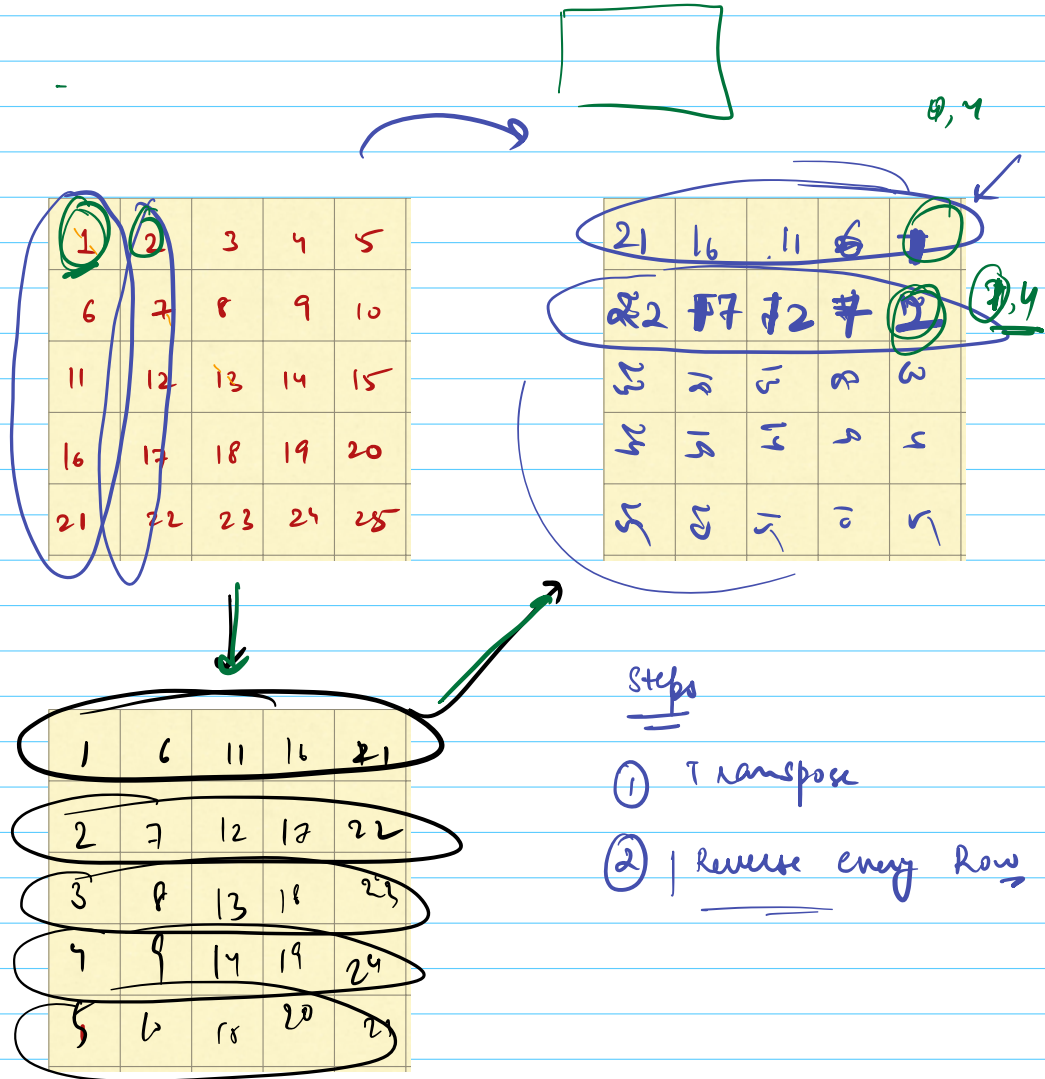 0, 4
1 2 3 4 5
6 7 8 9 10
11 12 13 14 15
16 17 18 19 20
21 22 23 24 25
21 16 11 6 1
22 17 12 7 2
1, 4
23 18 13 8 3
24 19 14 9 4
25 20 15 10 5
1 6 11 16 21
2 7 12 17 22
3 8 13 18 23
4 9 14 19 24
5 10 15 20
Steps
1 Transpose
2 Reverse every Row